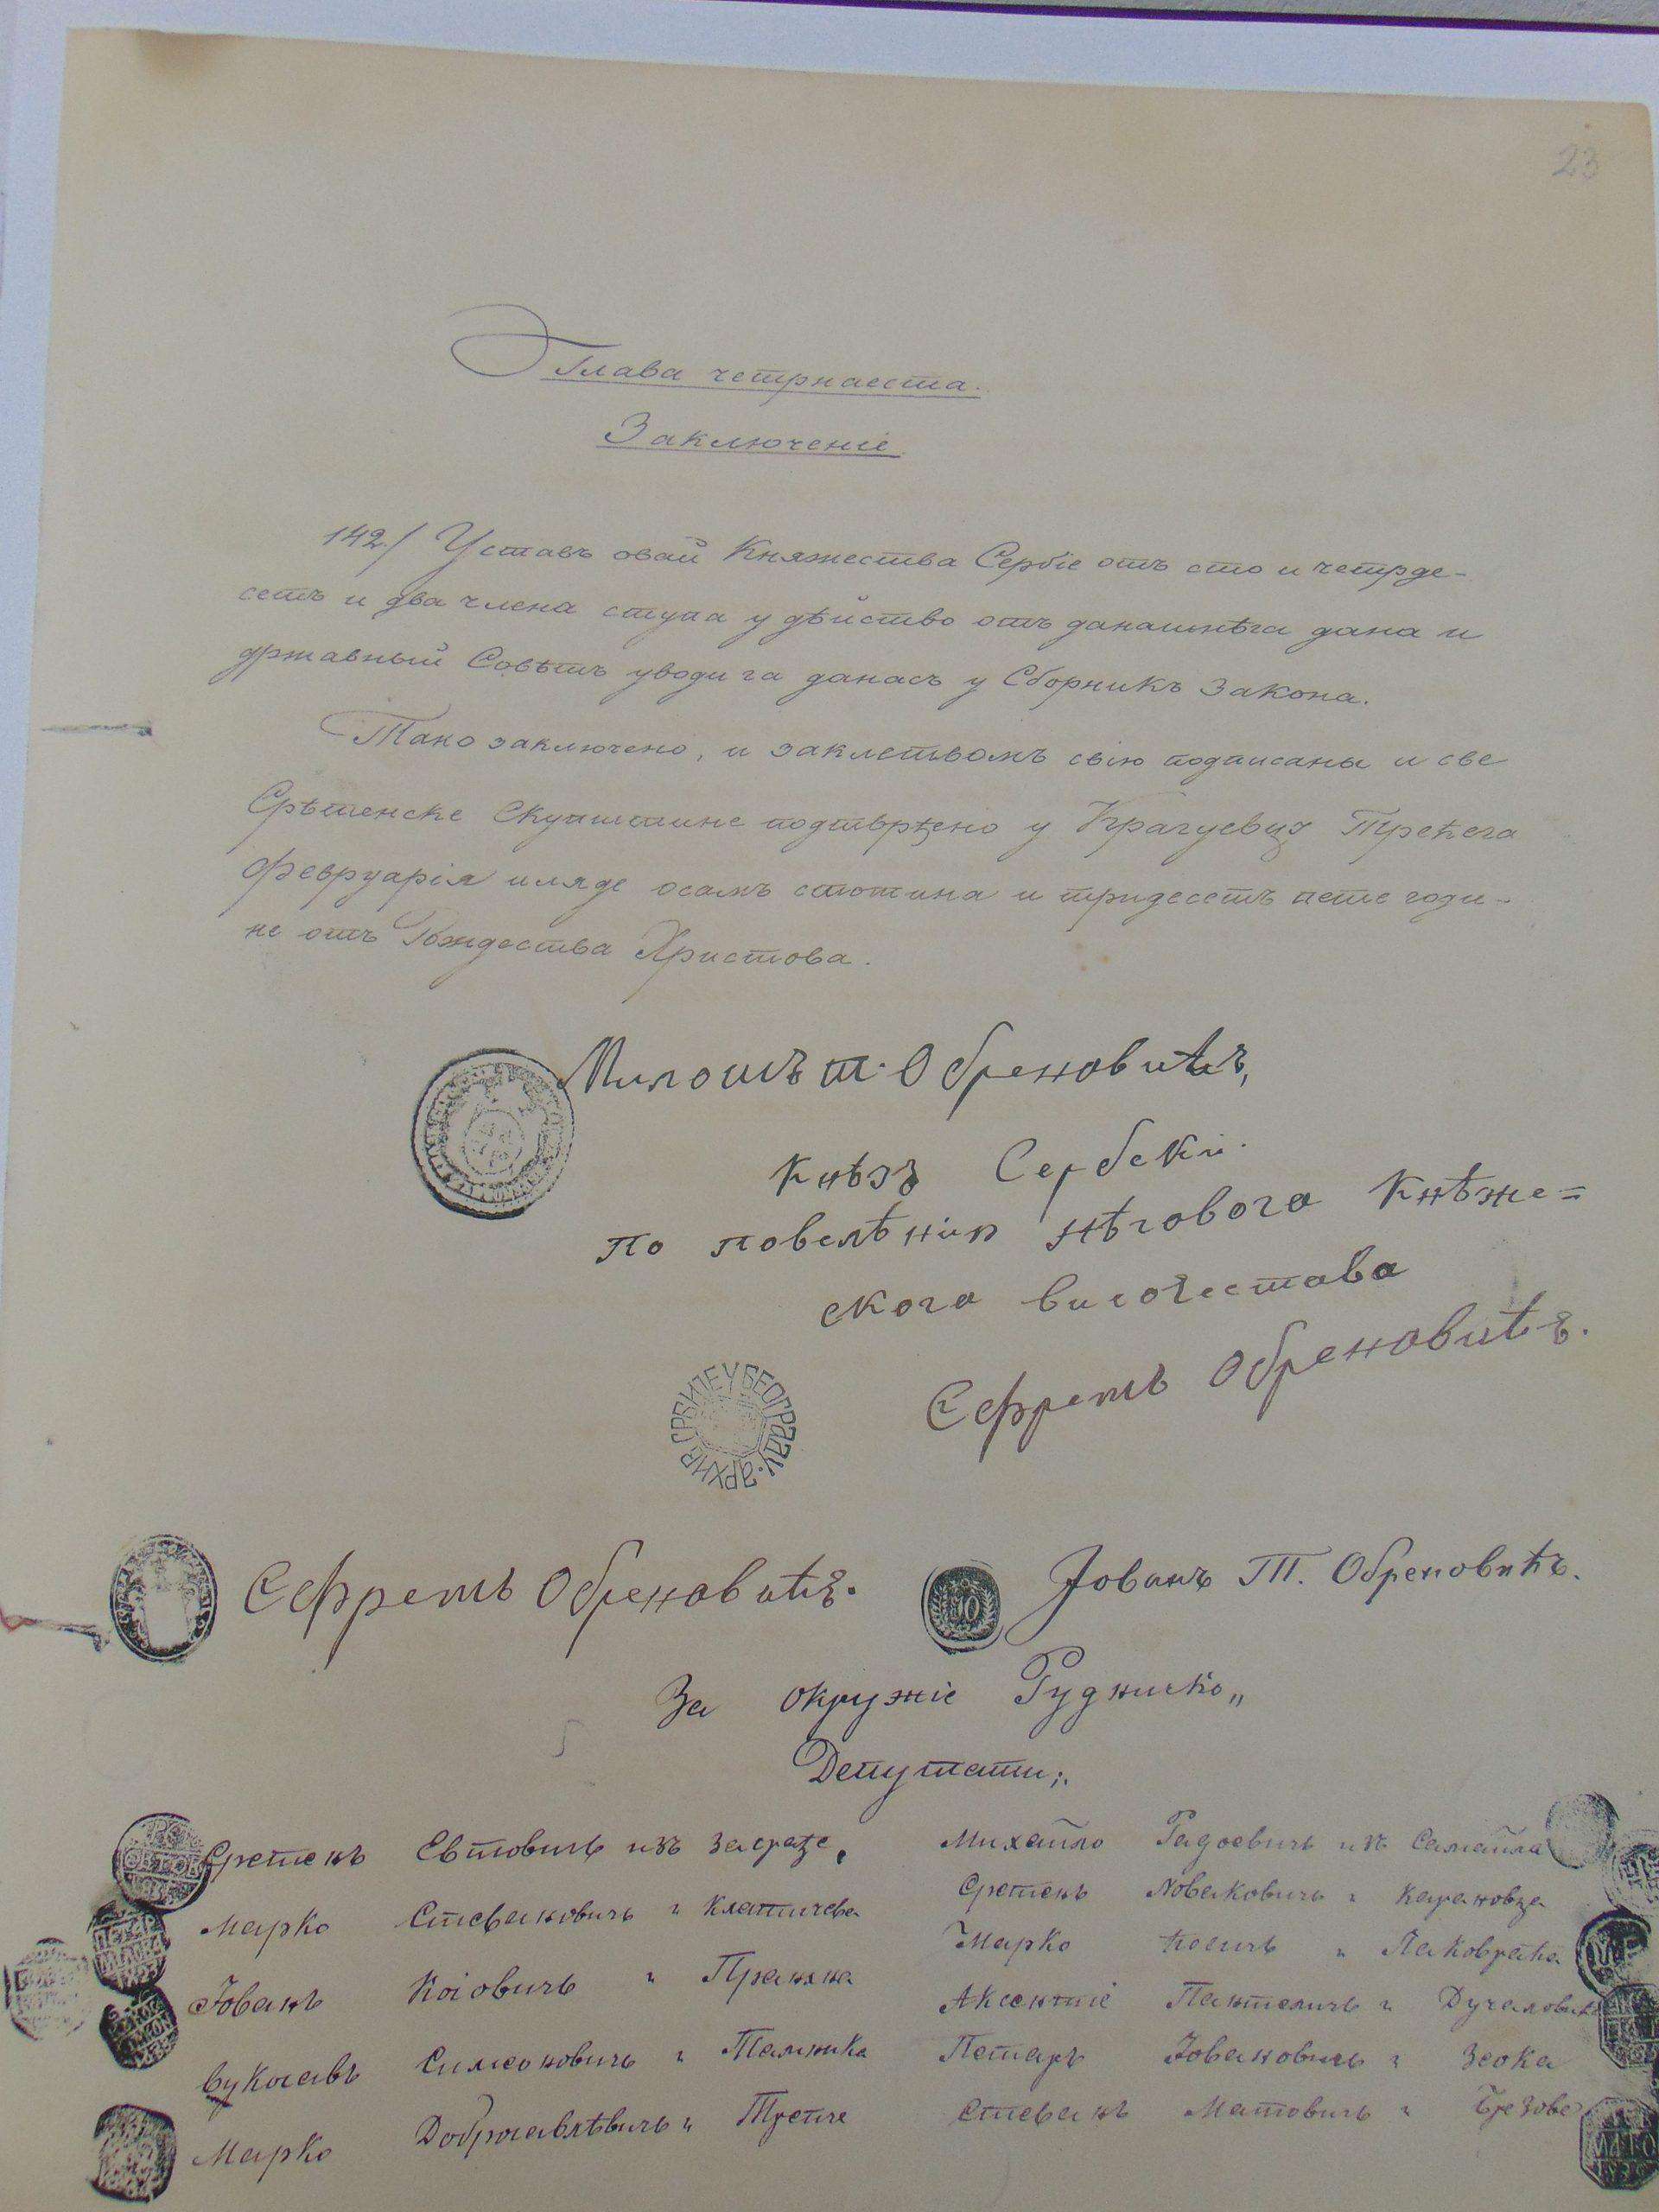 23
Глава четрнаеста.
Заключеніе.
142./ Уставъ овай Княжества Сербіе отъ сто и четрде-
сетъ и два члена ступа у дѣйство отъ данашнѣга дана и
државный Совѣтъ уводи га данасъ у Сборникъ Закона.
Тако заключено, и заклетвомъ свію подписаны и све
Срѣтенске Скупштине подтврђено у Крагуевцу Трећега
Февруарія иляде осамъ стотина и тридесетъ пете годи-
не отъ Рождества Христова.
Милошъ т. Обреновићъ,
Князъ Сербскій.
По повелѣнию нѣгового Кнѣже=
ского височества
Єфремъ Обреновићъ.
АРХИВ СРБИЈЕ У БЕОГРАДУ
Єфремъ Обреновићъ.
Јованъ Т. Обреновићъ.
За окружіе Рудничко„
Депутати;.
Сретенъ Евтовичь изъ Засраде,
Марко Стевановичь „ Клатичева
Јованъ Коіовичь „ Праняна
Вукосавъ Симеоновичь „ Тамника
Марко Добросавлѣвичь „ Трепче
Михайло Радоевичь изъ Самайла
Сретенъ Новаковичь „ Карановца
Марко „ Лаковраћа
Аксентіе Пантеличь „ Дучаловића
Петаръ Јовановичь „ Зеока
Стеванъ Матовичь „ Брезове